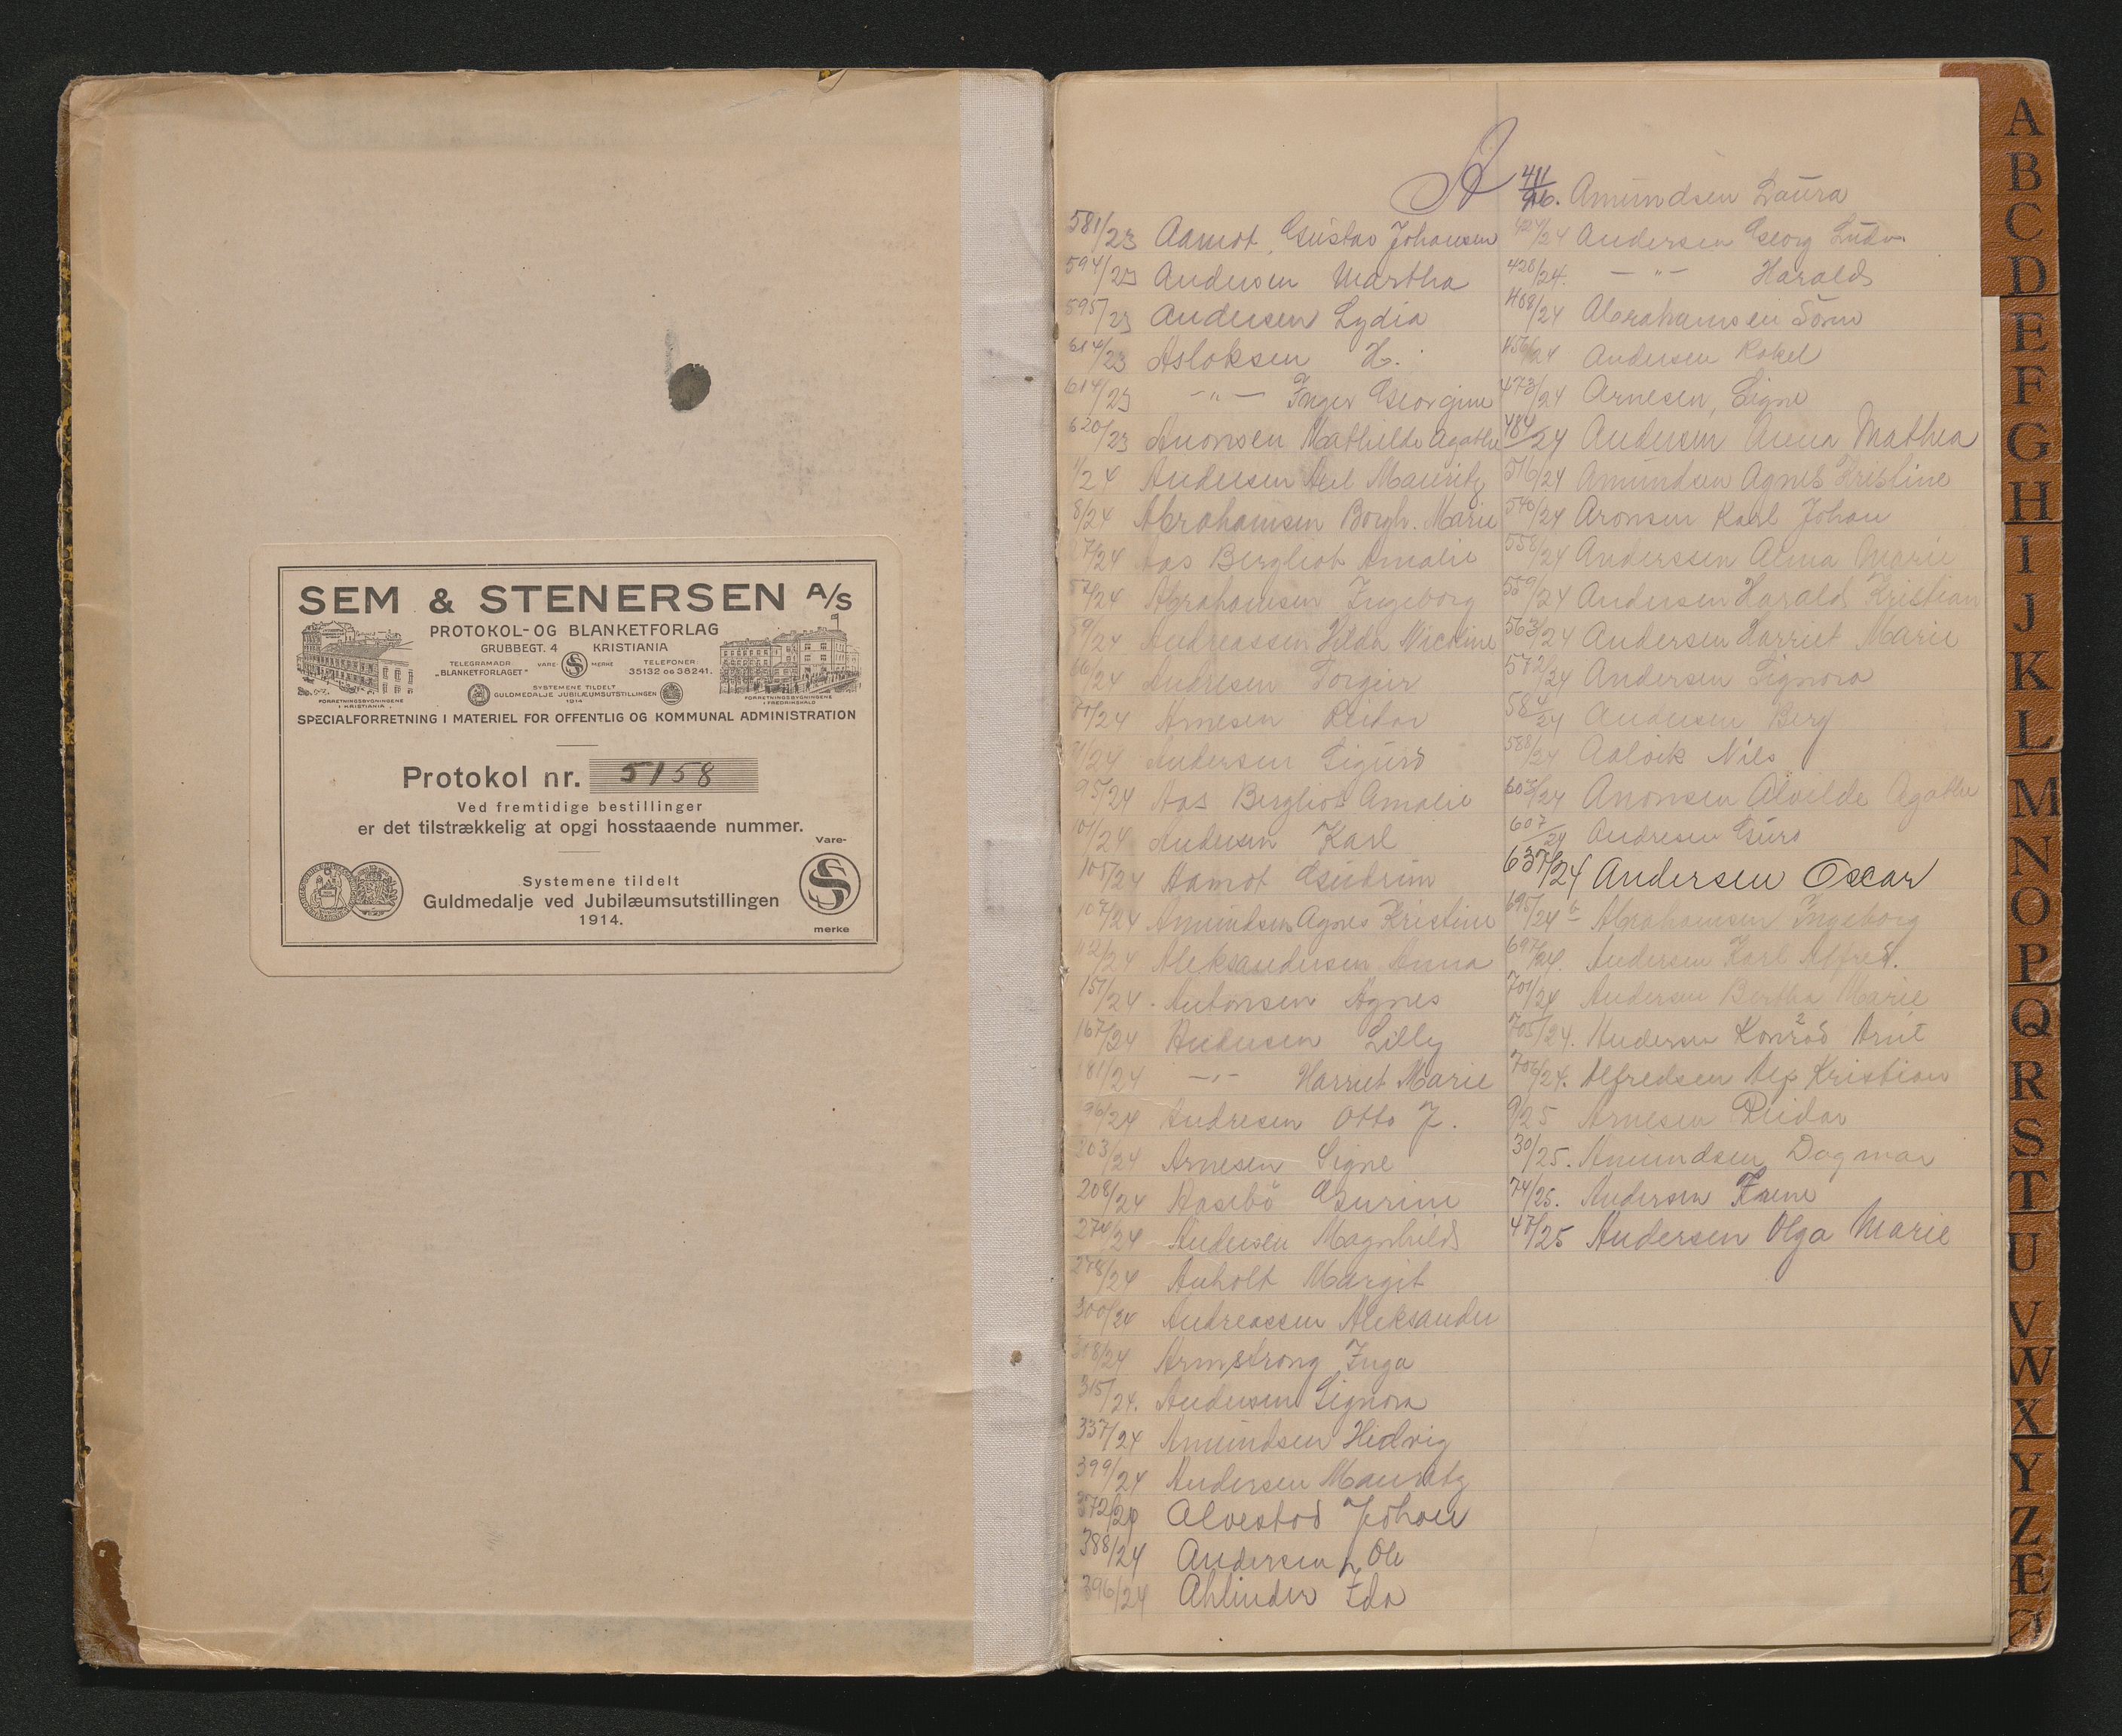 SEM & STENERSEN A/S
PROTOKOL- OG BLANKETFORLAG
GRUBBEGT. 4 KRISTIANIA
TELEGRAMADR: VARE- S MERKE TELEFONER:
"BLANKETFORLAGET" 35132 OG 36241.
SYSTEMENE TILDELT
GULDMEDALJE JUBILÆUMSUTSTILLINGEN
1914
FORRETNINGSBYGNINGENE I KRISTIANIA
FORRETNINGSBYGNINGENE I FREDRIKSHALD
SPECIALFORRETNING I MATERIEL FOR OFFENTLIG OG KOMMUNAL ADMINISTRATION
Protokol nr. 5158
Ved fremtidige bestillinger
er det tilstrækkelig at opgi hosstaaende nummer.
Vare-
S
merke
Systemene tildelt
Guldmedalje ved Jubilæumsutstillingen
1914.
A
581/23 Aamot, Gustav Johansen
594/23 Andersen Martha
595/23 Andersen Lydia
614/23 Asloksen H.
614/23 -"- Inger Georgine
620/23 Anonsen Mathilde Agathe
1/24 Andersen Axel Mauritz
8/24 Abrahamsen Borgh. Marie
/24 Aas Bergliot Amalie
52/24 Abrahamsen Ingeborg
59/24 Andreassen Hilda Nicoline
/24 Andresen Torgeir
/24 Arnesen Reidar
/24 Andersen Sigurd
95/24 Aas Bergliot Amalie
101/24 Andersen Karl
105/24 Aamot Gudrun
107/24 Amundsen Agnes Kristine
112/24 Aleksandersen Anna
151/24 Antonsen Agnes
167/24 Andersen Lilly
181/24 -"- Harriet Marie
196/24 Andresen Otto J.
203/24 Arnesen Signe
208/24 Aasebö Gurine
274/24 Andersen Magnhild
278/24 Anholt Margit
300/24 Andreassen Aleksander
308/24 Armstrong Inga
315/24. Andersen Signora
337/24 Amundsen Hedvig
399/24 Andersen Mauritz
372/24 Alvestad Johan
388/24 Andersen, Ole
396/24 Ahlinder Ida
411/ Amundsen Laura
424/24 Andersen Georg Ludv.
428/24. -"- Harald
468/24 Abrahamsen
456/24 Andersen Rakel
473/24 Arnesen, Signe
484/24 Andersen Anna Mathea
516/24 Amundsen Agnes Kristine
540/24 Aronsen Karl Johan
558/24 Anderssen Alma Marie
559/24 Andersen Harald Kristian
563/24 Andersen Harriet Marie
572/24 Andersen Signora
584/24 Andersen Berg
588/24 Aalvik Nils
605/24 Anonsen Alvilde Agathe
607/24 Andresen Guro
637/24 Andersen Oscar
695/24 b Abrahamsen Ingeborg
697/24. Andersen Karl Alfred.
701/24 Andersen Bertha Marie
705/24. Andersen Konrad Arnt
706/24. Alfredsen Alf Kristian
9/25 Arnesen Reidar
30/25. Amundsen Dagmar
74/25. Andersen
47/25 Andersen Olga Marie
A
B
C
D
E
F
G
H
I
J
K
L
M
N
O
P
Q
R
S
T
U
V
W
X
Y
Z
Æ